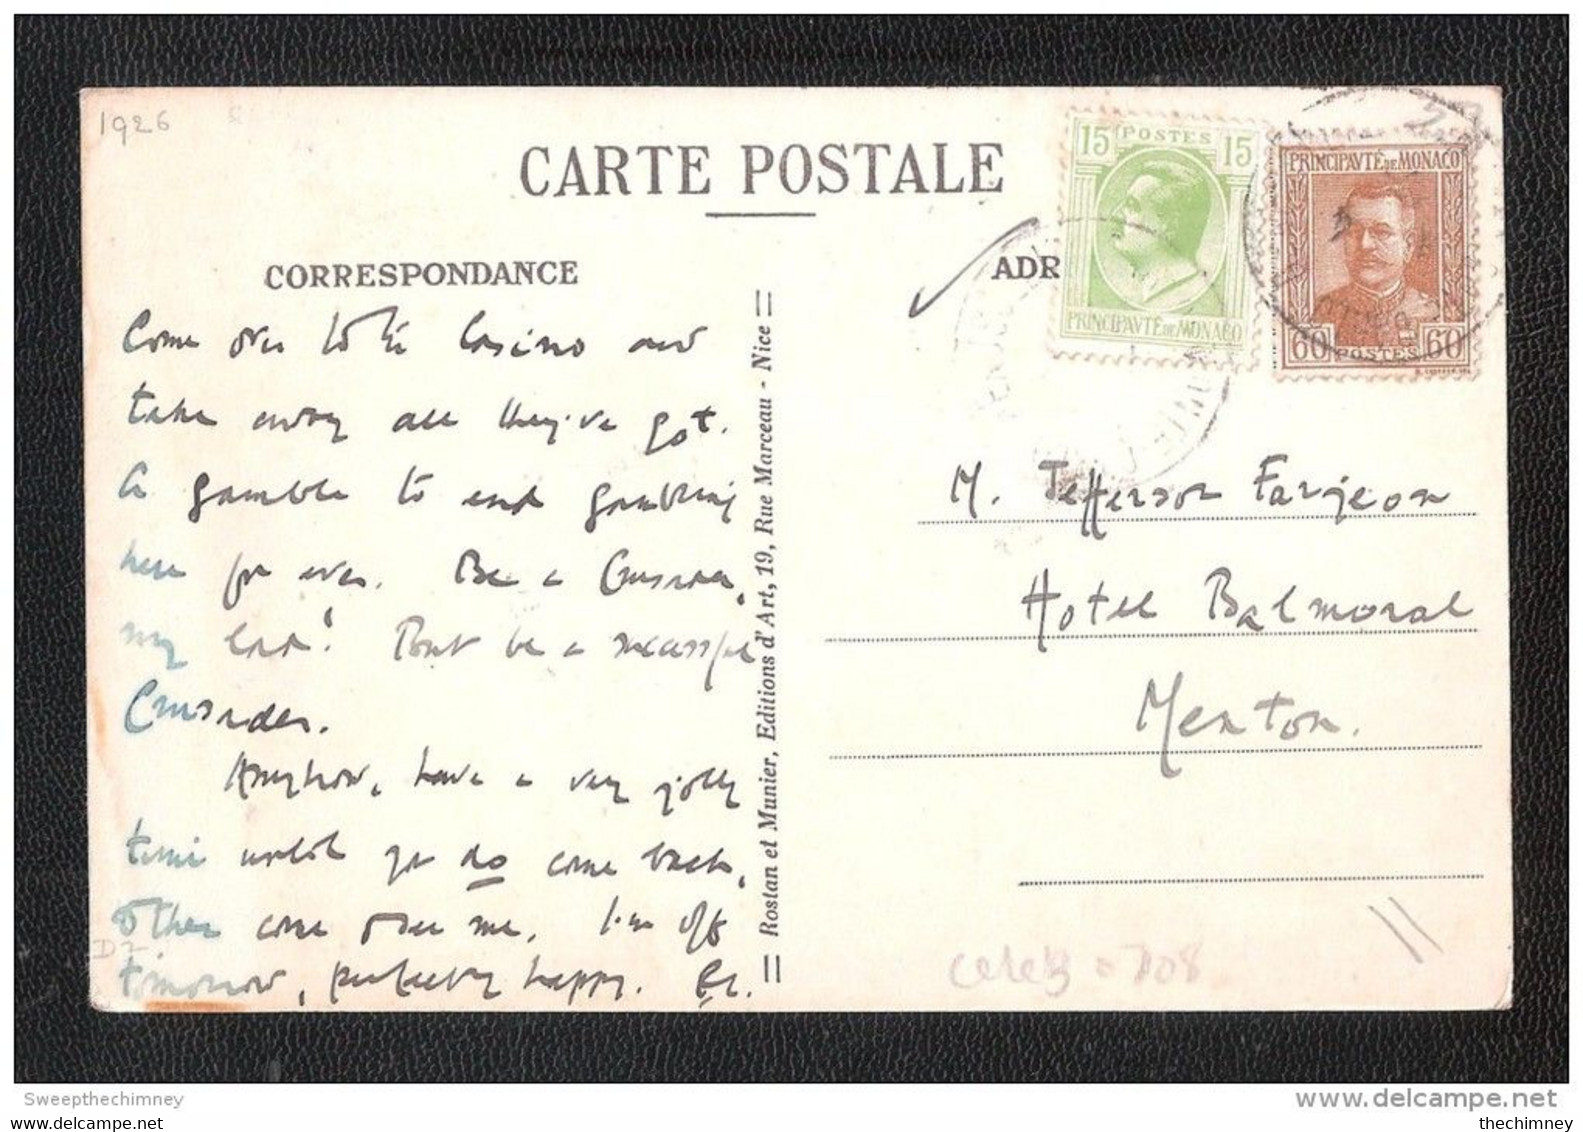 1926
CARTE POSTALE
CORRESPONDANCE
ADR
15 POSTES 15
PRINCIPAVTÉ DE MONACO
PRINCIPAVTÉ DE MONACO
60 POSTES 60
Come over to the Casino and
take away all they've got.
A gamble to end gambling
here for ever. Be a Crusader,
my lad! But be a successful
Crusader.
Anyhow, have a very jolly
time until you do come back,
other come over me. I'm off
tomorrow, perfectly happy.
Rostan et Munier, Editions d'Art, 19, Rue Marceau - Nice
M. Jefferson Farjeon
Hotel Balmoral
Menton.
D7
celeb 0708
Sweepthechimney
www.delcampe.net
thechimney